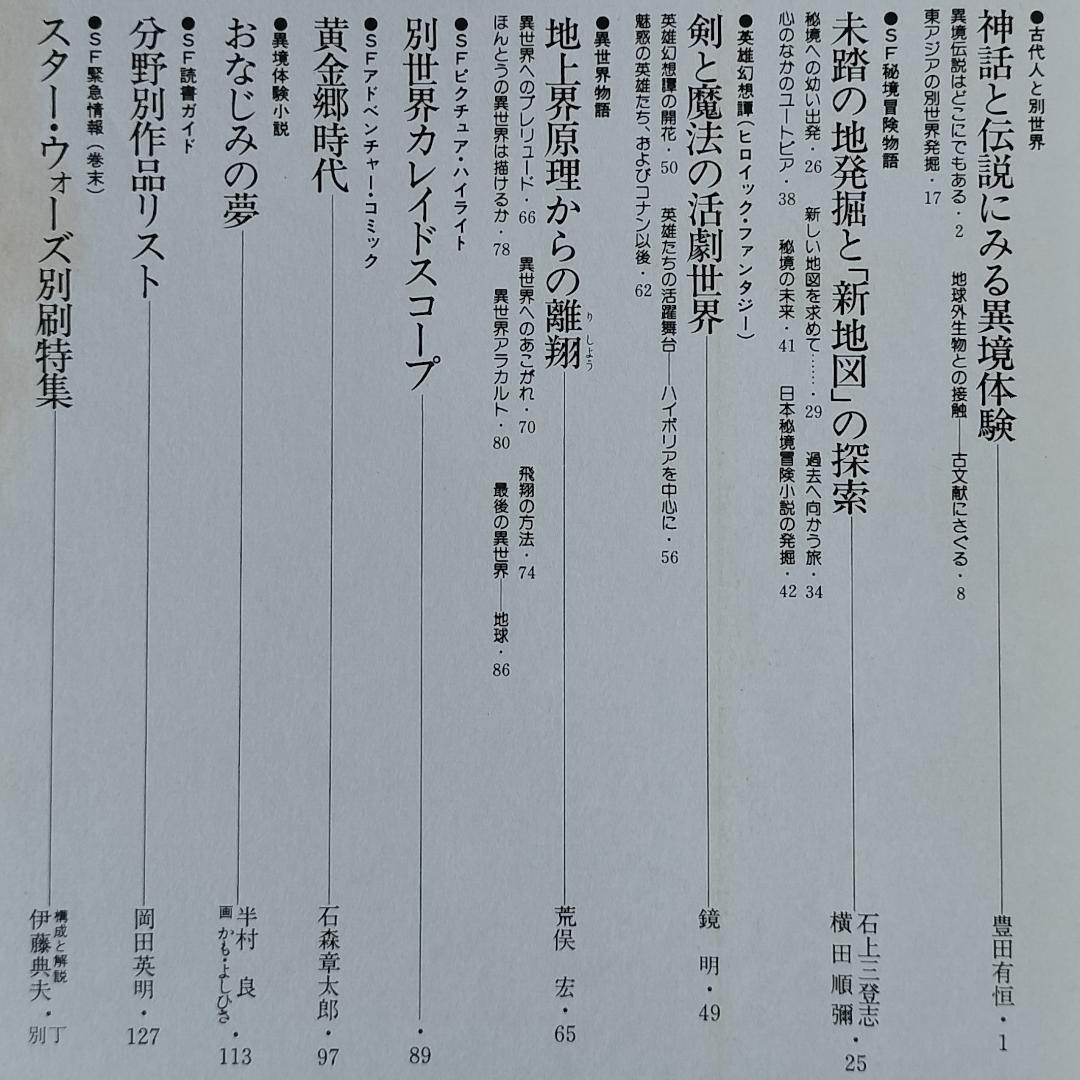 ●古代人と別世界
神話と伝説にみる異境体験
豊田有恒・1
異境伝説はどこにでもある・2　地球外生物との接触——古文献にさぐる・8
東アジアの別世界発掘・17
●ＳＦ秘境冒険物語
未踏の地発掘と「新地図」の探索
石上三登志
横田順彌・25
秘境への幼い出発・26　新しい地図を求めて……・29　過去へ向かう旅・34
心のなかのユートピア・38　秘境の未来・41　日本秘境冒険小説の発掘・42
●英雄幻想譚（ヒロイック・ファンタジー）
剣と魔法の活劇世界
鏡　明・49
英雄幻想譚の開花・50　英雄たちの活躍舞台——ハイボリアを中心に・56
魅惑の英雄たち、およびコナン以後・62
●異世界物語
地上界原理からの離翔
りしょう
荒俣　宏・65
異世界へのプレリュード・66　異世界へのあこがれ・70　飛翔の方法・74
ほんとうの異世界は描けるか・78　異世界アラカルト・80　最後の異世界——地球・86
●ＳＦピクチュア・ハイライト
別世界カレイドスコープ
・89
●ＳＦアドベンチャー・コミック
黄金郷時代
石森章太郎・97
●異境体験小説
おなじみの夢
半村　良
画　かも・よしひさ・113
●ＳＦ読書ガイド
分野別作品リスト
岡田英明・127
●ＳＦ緊急情報（巻末）
スター・ウォーズ別刷特集
構成と解説
伊藤典夫・別丁